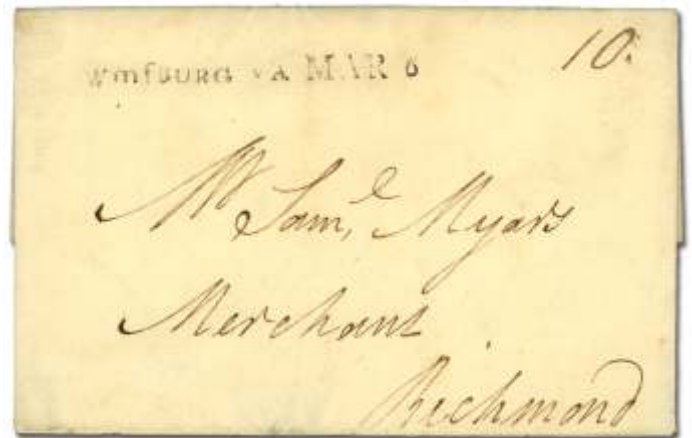 WmſBURG VA MAR 6
10.
Mr Saml, Myars
Merchant
Richmond